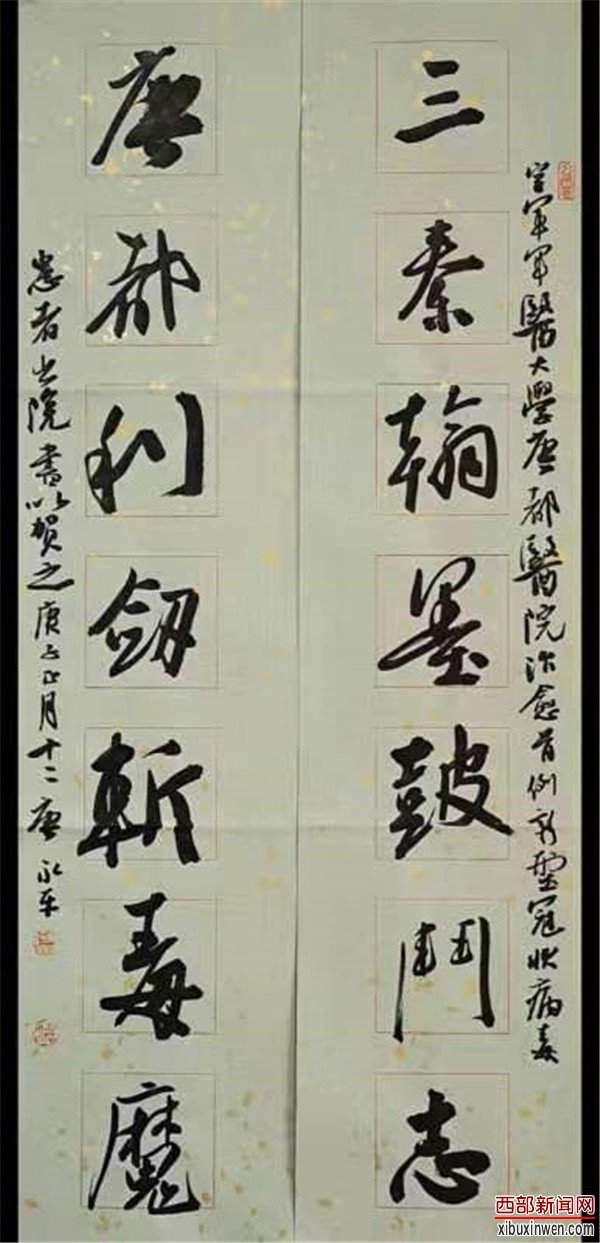 空軍軍醫大學唐都醫院治愈首例新型冠狀病毒
三秦翰墨鼓鬥志
唐都利劔斬毒魔
患者出院書以賀之庚子正月十二唐永平
西部新闻网
xibuxinwen.com